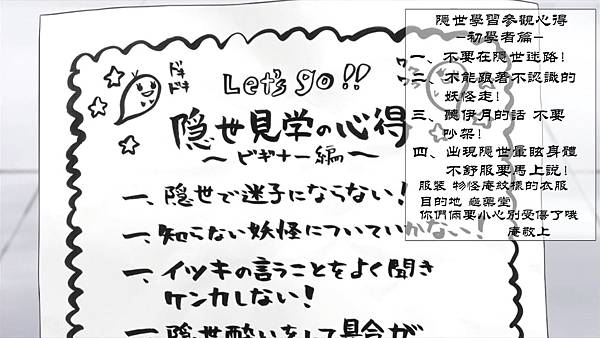 ドキ
ドキ
Let's go!!
ワク
ワク
隠世見学の心得
〜ビギナー編〜
一、隠世で迷子にならない!
一、知らない妖怪についていかない!
一、イツキの言うことをよく聞き
ケンカしない!
一、隠世酔いをして具合が
隱世學習參觀心得
-初學者篇-
一、不要在隱世迷路!
二、不能跟著不認識的
妖怪走!
三、聽伊月的話 不要
吵架!
四、出現隱世暈眩身體
不舒服要馬上說!
服裝 物怪庵紋樣的衣服
目的地 藥堂
你們倆要小心別受傷了哦
庵敬上